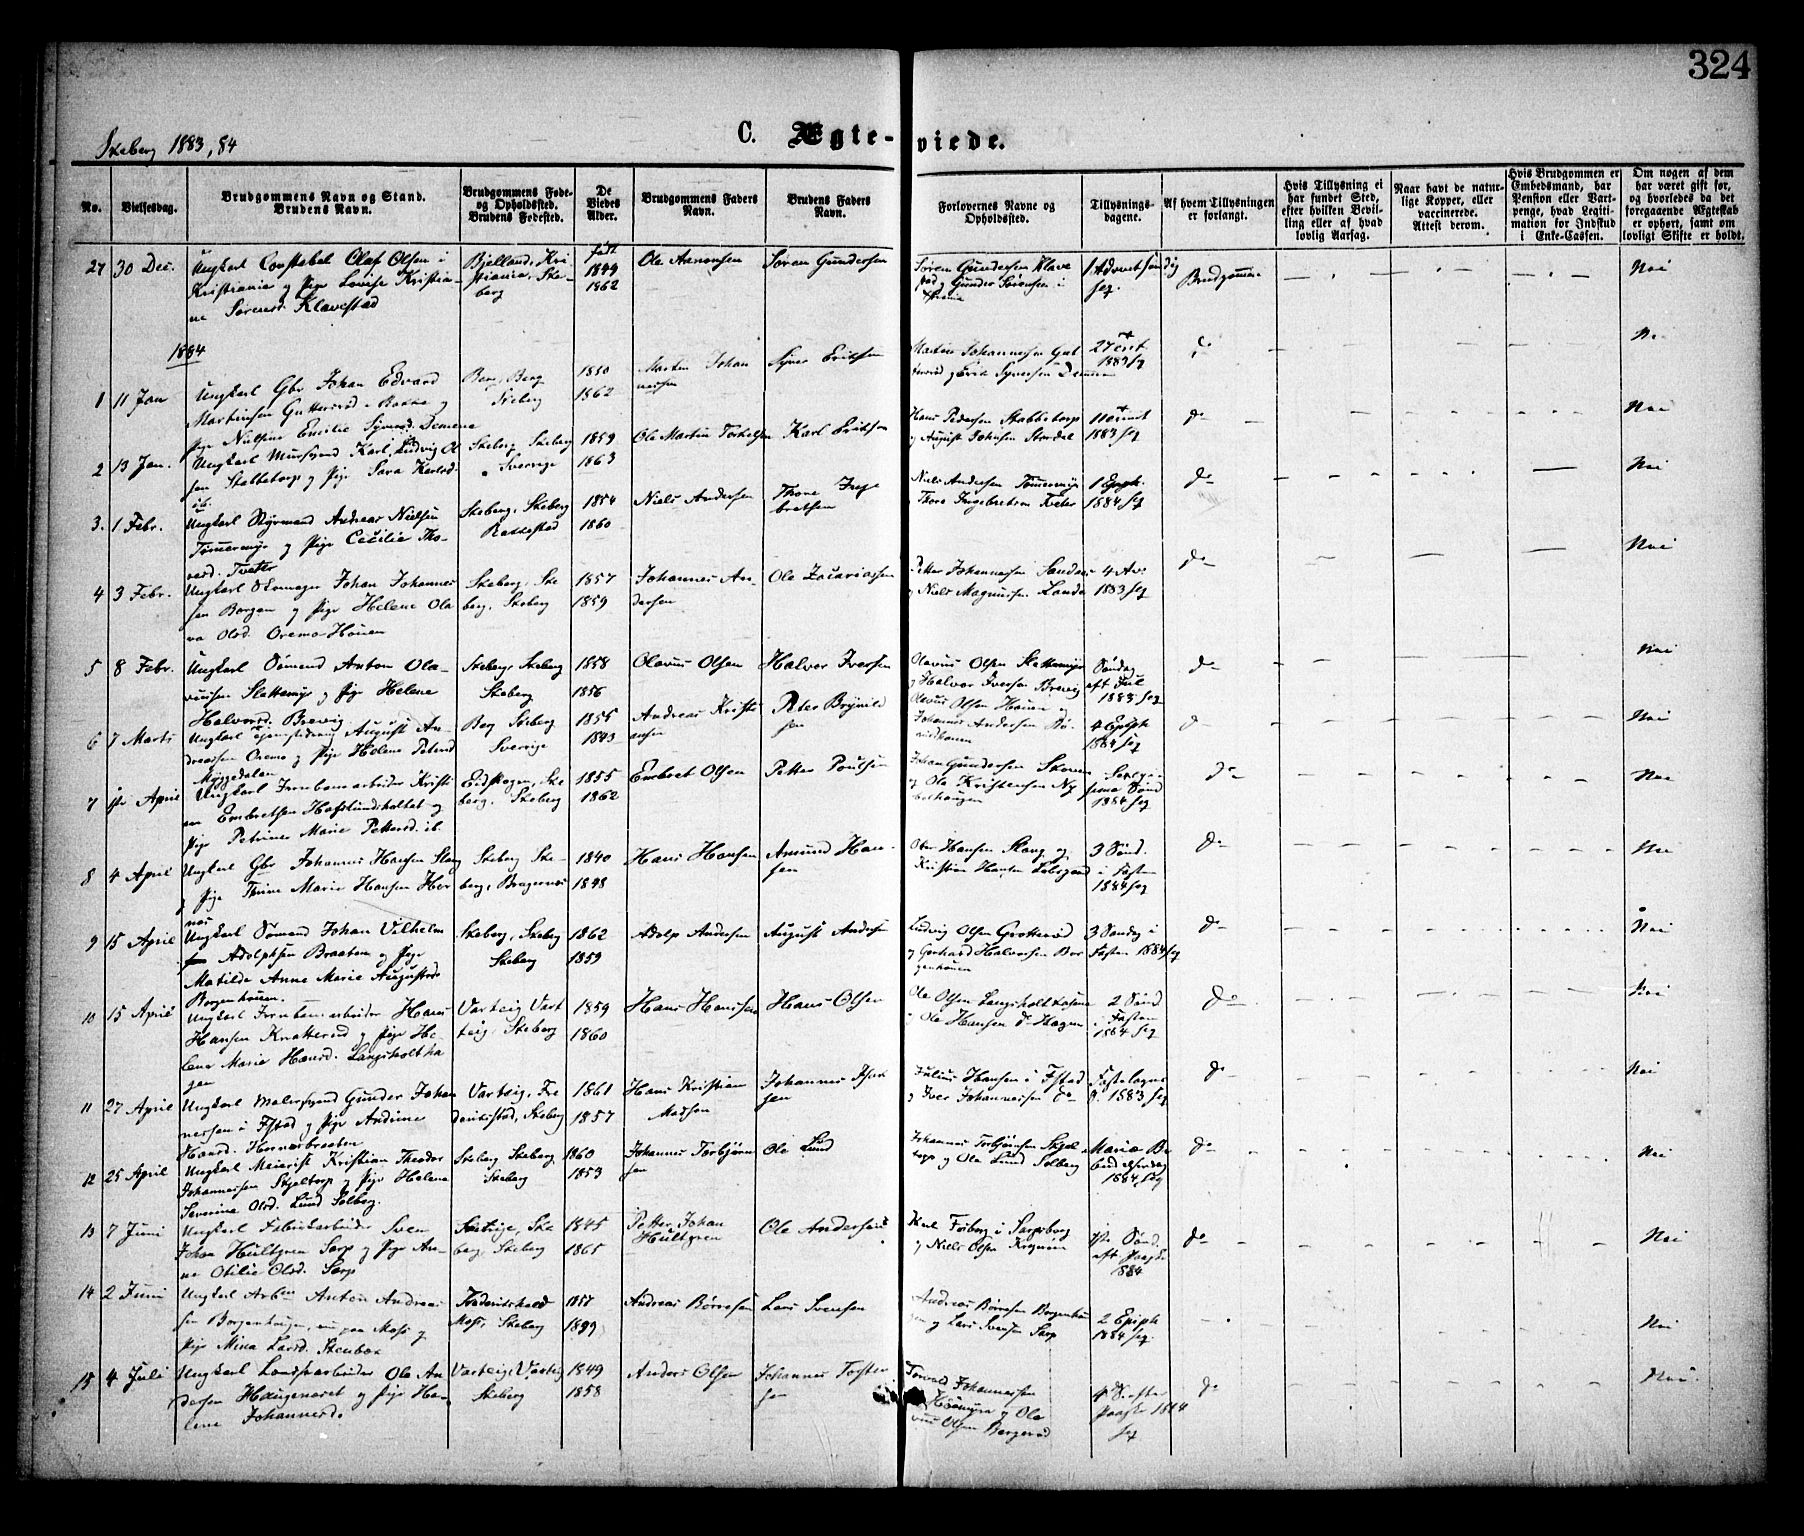 324
Skeberg 1883, 84
C. Ægte-viede.
No.
Vielsesdag.
Brudgommens Navn og Stand.
Brudens Navn.
Brudgommens Føde-
og Opholdssted.
Brudens Fødested.
De
Viedes
Alder.
Brudgommens Faders
Navn.
Brudens Faders
Navn.
Forlovernes Navne og
Opholdssted.
Tillysnings-
dagene.
Af hvem Tillysningen
er forlangt.
Hvis Tillysning ei
har fundet Sted,
efter hvilken Bevil-
ling eller af hvad
lovlig Aarsag.
Naar havt de natur-
lige Kopper, eller
vaccinerede.
Attest derom.
Hvis Brudgommen er
Embedsmand, har
Pension eller Vart-
penge, hvad Legiti-
mation for Indskud
i Enke-Cassen.
Om nogen af dem
har været gift før,
og hvorledes da det
foregaaende Ægteskab
er ophørt, samt om
lovligt Skifte er holdt.
27 30 Dec.
Ungkarl Constabel Olaf Olsen i
Kristiania og Pige Lovise Kristia-
ne Sørensd. Klavestad
Bjelland, Kri-
stiania, Ske-
berg
født
1849
1862
Ole Aanonsen
Søren Gundersen
Søren Gundersen Klave
stad og Gunder Sørensen i
1 Adventsøndag
Brudgommen
Nei
1884
1 11 Jan
Ungkarl Gbr Johan Edvard
Martinsen Gutterød i Bakke og
Pige Nielsine Emilie Syversd. Demene
Berg, Berg
Skeberg
1850
1862
Martin Johan
nessen
Syver Eriksen
Martin Johannessen Gut
terød og Erik Syversen Demene
do
Nei
2 13 Jan.
Ungkarl Mursvend Karl Ludvig Ol
sen Stabbetorp og Pige Sara Karlsd.
ib.
Skeberg, Skeberg
Sverrige
1859
1863
Ole Martin Torkelsen
Karl Eriksen
Hans Pedersen Stabbetorp
og August Johnsen Stordal
1883 seq
do
Nei
3. 1 Febr.
Ungkarl Styrmand Andreas Nielsen
Tømmermyr og Pige Cecilie Tho-
resd. Tveter
Skeberg, Skeberg
Rakkestad
1854
1860
Niels Andersen
Thore Inge
bretsen
Niels Andersen Tømmermyr
og Thore Ingebretsen Tveter
1 Epiph.
1884 seq
do
Nei
4 3 Febr.
Ungkarl Skomager Johan Johannes
sen Borgen og Pige Helene Ola
va Olsd. Oremo Hauen
Skeberg, Ske
berg, Skeberg
1857
1859
Johannes An-
dersen
Ole Zacariassen
Petter Johannessen Sandaas
og Niels Magnussen Lande
4 Av.
1883 seq
do
Nei
5 8 Febr.
Ungkarl Sømand Anton Ola-
viusen Slettemyr og Pige Helene
Halvorsd. Brevig
Skeberg, Skeberg
Skeberg
1858
1856
Olavus Olsen
Halvor Iversen
Olavus Olsen Slettemyr
og Halvor Iversen Brevig
Søndag
eft Jul
1883 seq
do
Nei
6 7 Marts
Ungkarl Tjenestedreng August An-
dreassen Oremo og Pige Helene Petersd
Myggedalen
Berg Skeberg
Sverrige
1855
1843
Andreas Kristi
ansen
Peter Brynild
sen
Olavus Olsen Hauen og
Johannes Andersen
4 Epiph
1884 seq
do
Nei
7 April
Ungkarl Jernbanearbeider Kristi
an Embretsen Hafslundskoltet og
Pige Petrine Marie Pettersd. ib.
Eidskogen, Ske
berg. Skeberg
1855
1862
Embret Olsen
Petter Poulsen
Johan Gundersen Skoven
og Ole Kristensen Ny
borhaugen
1884 seq
do
Nei
8 4 April
Ungkarl Gbr Johannes Hansen Slang
og Pige Thrine Marie Hansen Her
nes
Skeberg Ske-
berg, Bragernes
1840
1848
Hans Hansen
Amund Han-
sen
Ole Hansen Slang og
3 Sønd.
i Fasten
1884 seq
do
Nei
9 15 April
Ungkarl Sømand Johan Vilhelm
Adolphsen Braaten og Pige
Matilde Anne Marie Augustsd.
Borgenhauen.
Skeberg, Skeberg
Skeberg
1862
1859
Adolp Andersen
August Andersen
Ludvig Olsen Grotterød
og Gerhard Halvorsen Bor
genhauen
3 Søndag i
Fasten 1884 seq
do
Nei
10 15 April
Ungkarl Jernbanearbeider Hans
Hansen Knatterød og Pige He-
lene Marie Hansd. Langsholt ha
gen
Varteig Vart
teig, Skeberg
1859
1860
Hans Hanssen
Hans Olsen
Ole Olsen Langsholt
og Ole Hansen do Hagen
2 Sønd
i Fasten
1884 seq
do
Nei
11 27 April
Ungkarl Malersvend Gunder Johan
nessen i Fstad og Pige Andrine
Hansd. Hornesbraaten
Varteig, Fre
derikstad, Skeberg
1861
1857
Hans Kristian
Madsen
Johannes Isak
sen
Julius Hansen i Fstad
og Iver Johannessen do
Fastelagns
S. 1883 seq
do
Nei
12 25 April
Ungkarl Meierist Kristian Theodor
Johannessen Skjeltorp og Pige Helene
Severine Olsd. Lund Solberg.
Skeberg Skeberg
Skeberg
1860
1853
Johannes Torbjørn
sen
Ole Lund
Johannes Torbjørnsen Skjel
torp og Ole Lund Solberg
Mariæ Be
budelsesdag
1884, seq
do
Nei
13 7 Juni
Ungkarl Fabrikarbeider Sven
Johan Hultgren Sarp og Pige An-
ne Otilie Olsd. Sarp
Sverige, Ske
berg, Skeberg
1845
1865
Petter Johan
Hultgren
Ole Andersen
Karl Friberg i Sarpsborg
og Niels Olsen
Sønd.
eft Paaske
1884
do
Nei
14 2 Juni
Ungkarl Arbm Anton Andreas
sen Borgenhaugen, nu paa Moss og
Pige Mina Larsd. Stenbæk
Frederikshald
Moss, Skeberg
1857
Andreas Børresen
Lars Svensen
Andreas Børresen Borgenhau
gen og Lars Svensen Sarp
2 Epiph
1884 seq.
Nei
15 4 Juli
Ungkarl Landarbeider Ole An
dersen Haugeneset og Pige He-
lene Johannesd.
Varteig, Varteig
Skeberg
1849
1858
Anders Olsen
Johannes Torster
sen
Torvald Johannessen
og Ola
vus Olsen Bergerød
4 S. efter
Paaske 1884
seq
do
Nei